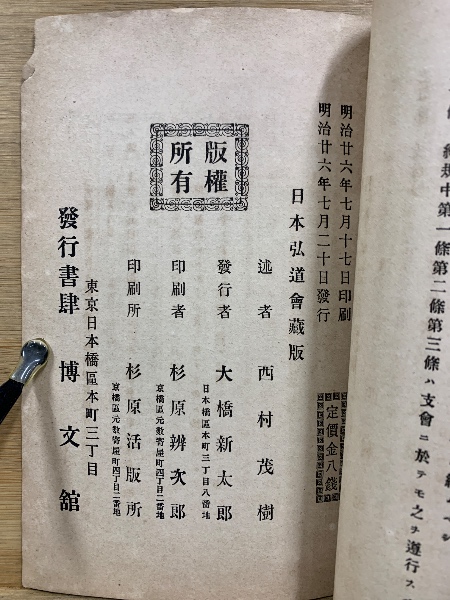 總規中第一條第二條第三條ハ支會ニ於テモ之ヲ遵行ス
明治廿六年七月十七日印刷
明治廿六年七月二十日發行
定價金八錢
日本弘道會藏版
述者 西村茂樹
發行者 大橋新太郎
日本橋區本町三丁目八番地
印刷者 杉原辨次郎
京橋區元數寄屋町四丁目二番地
印刷所 杉原活版所
京橋區元數寄屋町四丁目二番地
版權所有
東京日本橋區本町三丁目
發行書肆 博文舘